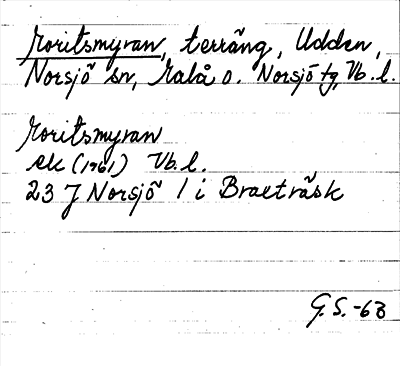 Moritsmyran, terräng, Udden,
Norsjö sn, Malå o. Norsjö tg, Vb. l.
Moritsmyran
ek (1961) Vb. l.
23 J Norsjö 1 i Braxträsk
G. S. -68